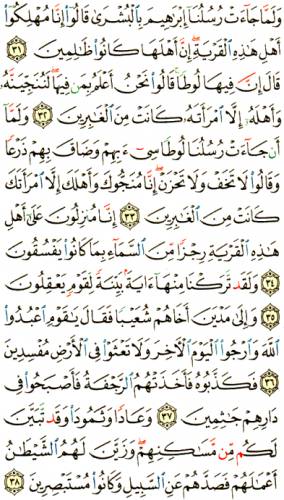 وَلَمَّا جَآءَتْ رُسُلُنَآ إِبْرَٰهِيمَ بِٱلْبُشْرَىٰ قَالُوٓا۟ إِنَّا مُهْلِكُوٓا۟
أَهْلِ هَٰذِهِ ٱلْقَرْيَةِ إِنَّ أَهْلَهَا كَانُوا۟ ظَٰلِمِينَ ٣١
قَالَ إِنَّ فِيهَا لُوطًا قَالُوا۟ نَحْنُ أَعْلَمُ بِمَن فِيهَا لَنُنَجِّيَنَّهُۥ
وَأَهْلَهُۥٓ إِلَّا ٱمْرَأَتَهُۥ كَانَتْ مِنَ ٱلْغَٰبِرِينَ ٣٢ وَلَمَّآ
أَن جَآءَتْ رُسُلُنَا لُوطًا سِىٓءَ بِهِمْ وَضَاقَ بِهِمْ ذَرْعًا
وَقَالُوا۟ لَا تَخَفْ وَلَا تَحْزَنْ إِنَّا مُنَجُّوكَ وَأَهْلَكَ إِلَّا ٱمْرَأَتَكَ
كَانَتْ مِنَ ٱلْغَٰبِرِينَ ٣٣ إِنَّا مُنزِلُونَ عَلَىٰٓ أَهْلِ
هَٰذِهِ ٱلْقَرْيَةِ رِجْزًا مِّنَ ٱلسَّمَآءِ بِمَا كَانُوا۟ يَفْسُقُونَ
٣٤ وَلَقَد تَّرَكْنَا مِنْهَآ ءَايَةًۢ بَيِّنَةً لِّقَوْمٍ يَعْقِلُونَ
٣٥ وَإِلَىٰ مَدْيَنَ أَخَاهُمْ شُعَيْبًا فَقَالَ يَٰقَوْمِ ٱعْبُدُوا۟
ٱللَّهَ وَٱرْجُوا۟ ٱلْيَوْمَ ٱلْءَاخِرَ وَلَا تَعْثَوْا۟ فِى ٱلْأَرْضِ مُفْسِدِينَ
٣٦ فَكَذَّبُوهُ فَأَخَذَتْهُمُ ٱلرَّجْفَةُ فَأَصْبَحُوا۟ فِى
دَارِهِمْ جَٰثِمِينَ ٣٧ وَعَادًا وَثَمُودَا۟ وَقَد تَّبَيَّنَ
لَكُم مِّن مَّسَٰكِنِهِمْ وَزَيَّنَ لَهُمُ ٱلشَّيْطَٰنُ
أَعْمَٰلَهُمْ فَصَدَّهُمْ عَنِ ٱلسَّبِيلِ وَكَانُوا۟ مُسْتَبْصِرِينَ ٣٨